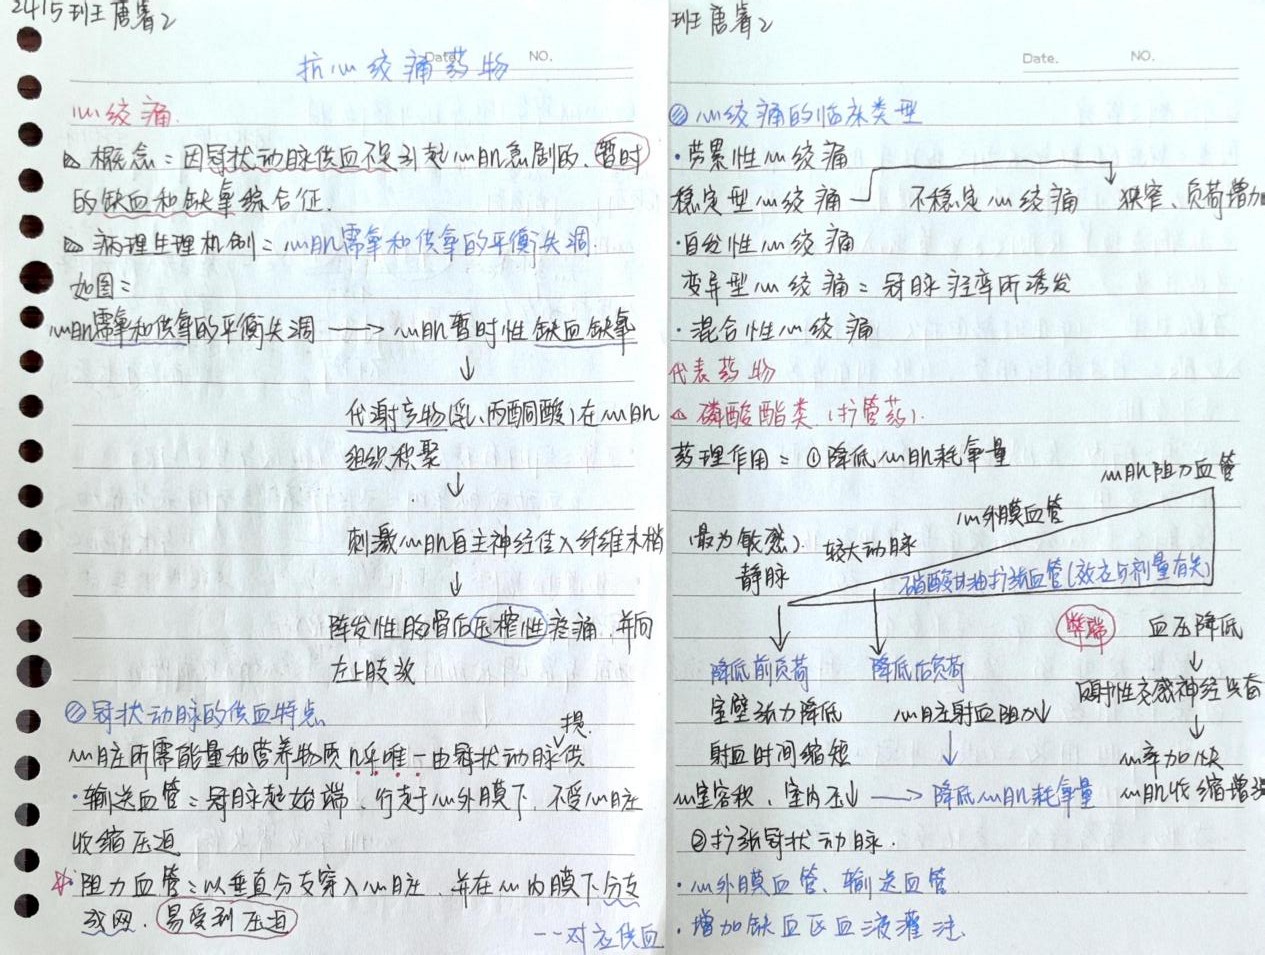 2415班王唐睿2
Date.
NO.
抗心绞痛药物
心绞痛.
概念：因冠状动脉供血不足引起心肌急剧的、暂时
的缺血和缺氧综合征.
病理生理机制：心肌需氧和供氧的平衡失调.
如图：
心肌需氧和供氧的平衡失调 → 心肌暂时性缺血缺氧
↓
代谢产物(乳、丙酮酸)在心肌
组织积聚
↓
刺激心肌自主神经传入纤维末梢
↓
阵发性胸骨后压榨性疼痛，并向
左上肢放
冠状动脉的供血特点
心脏所需能量和营养物质几乎唯一由冠状动脉提供
·输送血管：冠脉起始端，行走于心外膜下，不受心脏
收缩压迫
☆·阻力血管：以垂直分支穿入心脏，并在心内膜下分支
成网.易受到压迫
--对应供血
班王唐睿2
Date.
NO.
心绞痛的临床类型
·劳累性心绞痛
稳定型心绞痛 不稳定心绞痛 狭窄、负荷增加
·自发性心绞痛
变异型心绞痛：冠脉痉挛所诱发
·混合性心绞痛
代表药物
△磷酸酯类(扩管药).
药理作用：①降低心肌耗氧量
心肌阻力血管
心外膜血管
(最为敏感).
较大动脉
静脉
硝酸甘油扩张血管(效应与剂量有关)
弊端
血压降低
↓
降低前负荷
降低后负荷
反射性交感神经兴奋
室壁张力降低
心脏射血阻力↓
↓
射血时间缩短
↓
心率加快
心室容积、室内压↓ → 降低心肌耗氧量
心肌收缩增强
②扩张冠状动脉.
·心外膜血管、输送血管
·增加缺血区血液灌注.